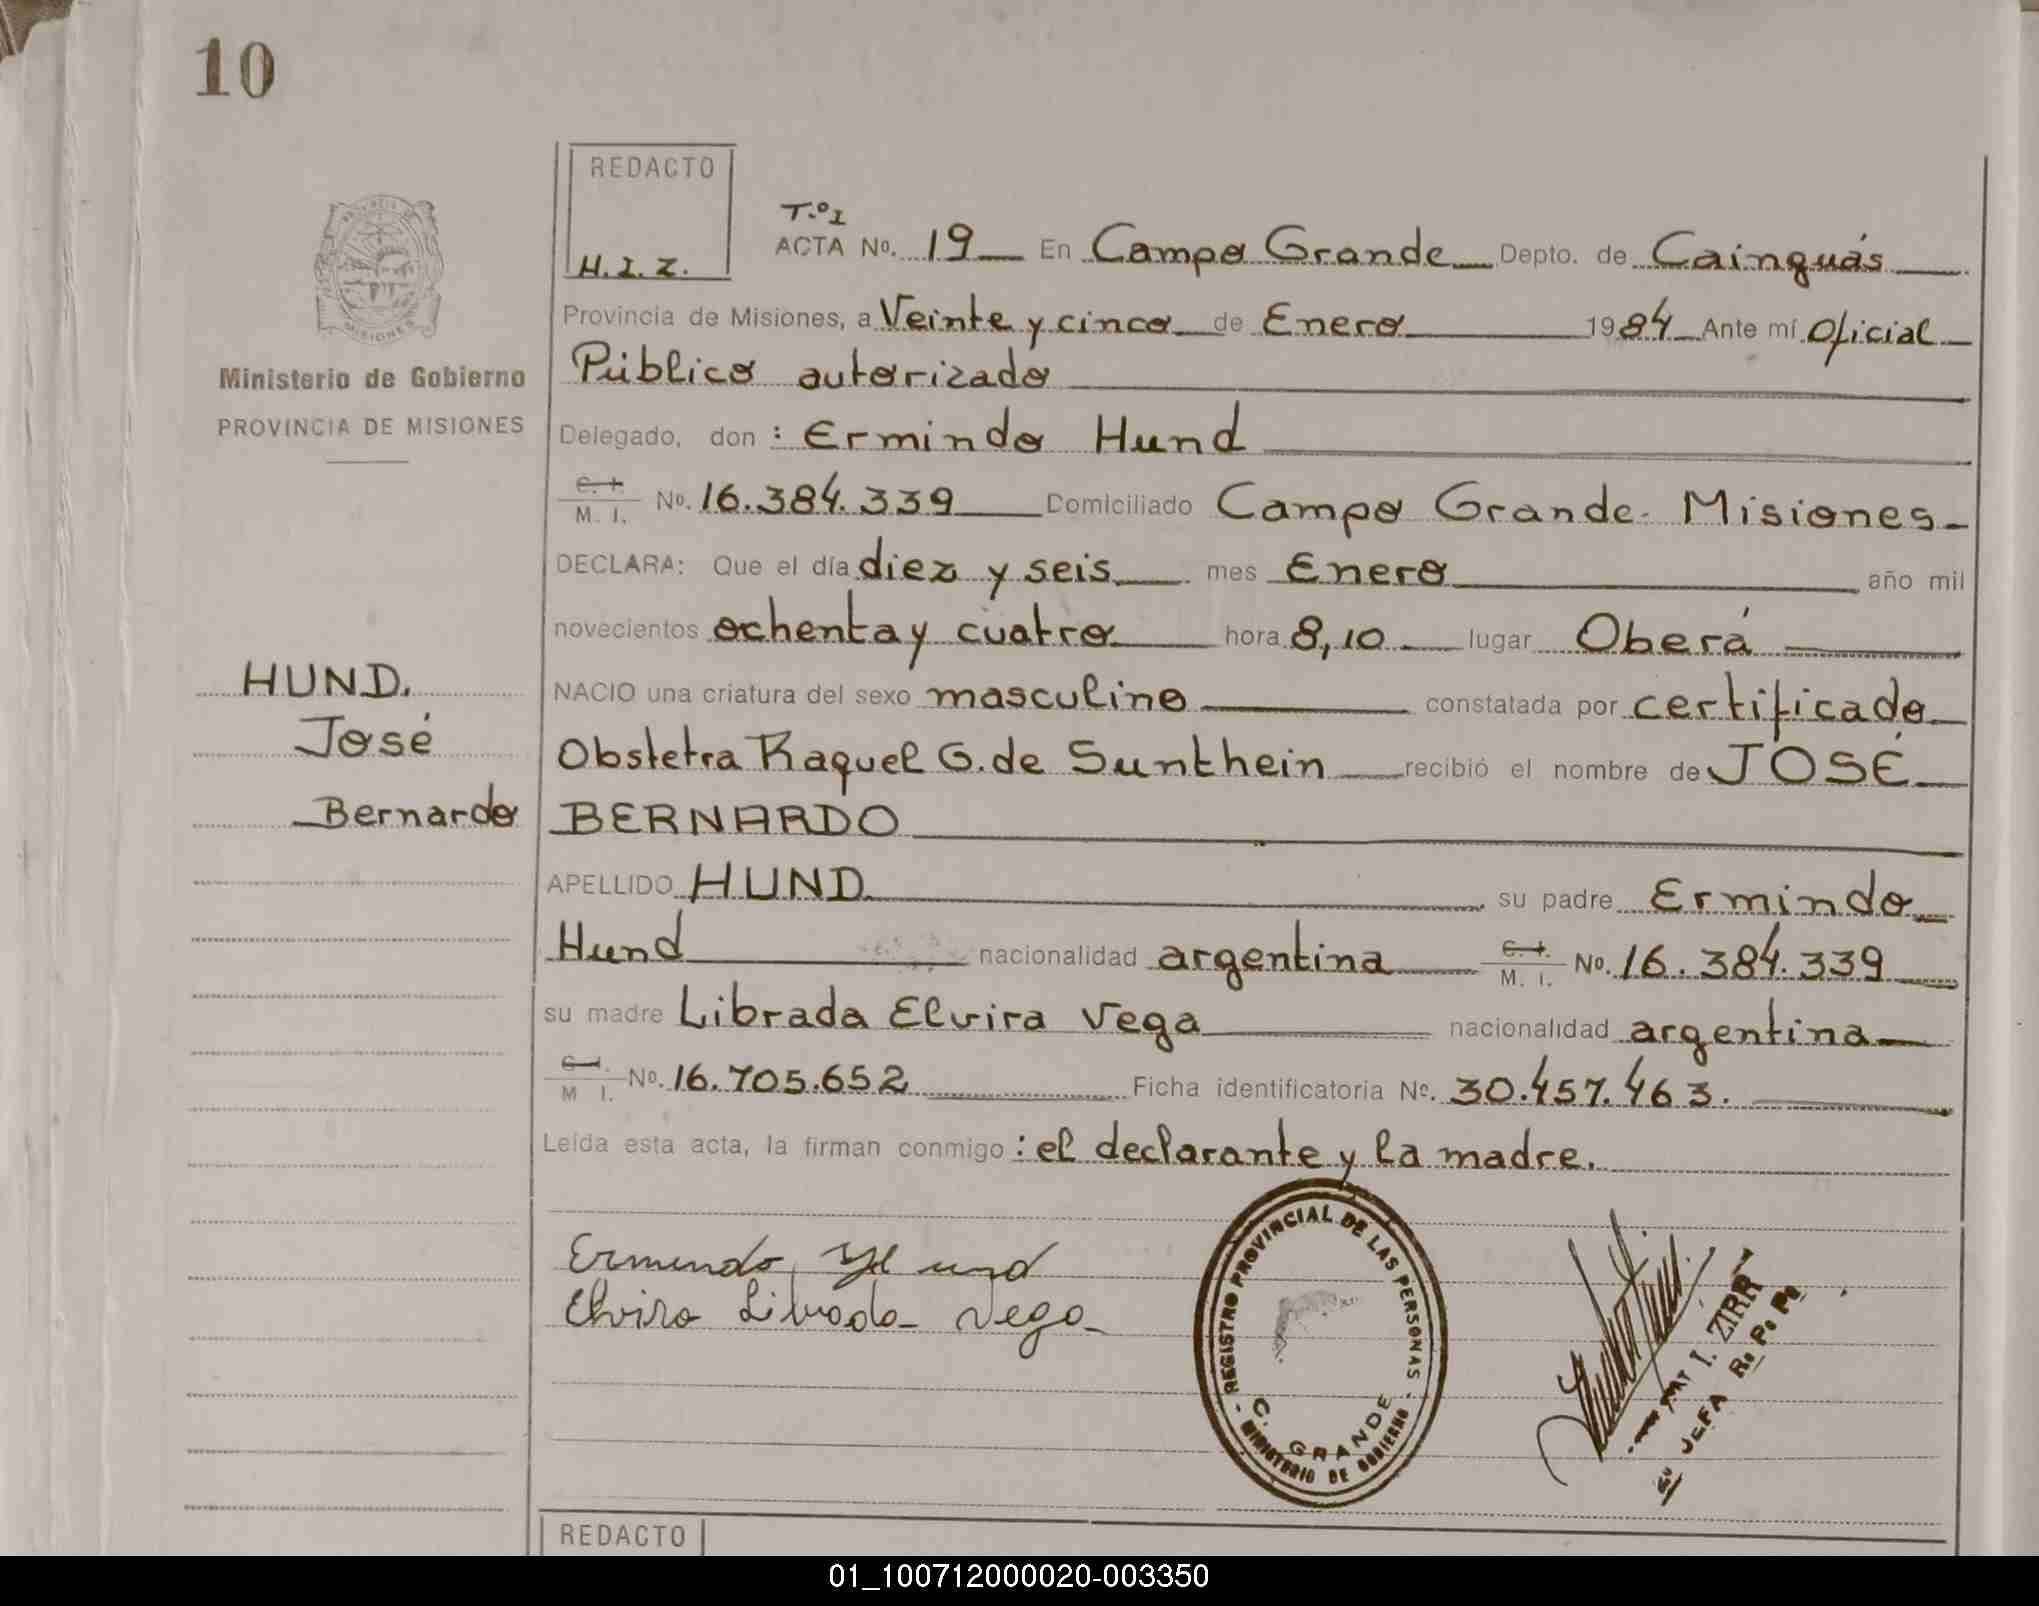 10
REDACTO
H.I.Z.
T.º 1
ACTA Nº. 19 En Campo Grande Depto. de Cainguás
Provincia de Misiones, a Veinte y cinco de Enero 1984 Ante mí Oficial
Público autorizado
Delegado, don : Ermindo Hund
C. I.
M. I. Nº. 16.384.339 Domiciliado Campo Grande - Misiones
DECLARA: Que el día diez y seis mes Enero año mil
novecientos ochenta y cuatro hora 8,10 lugar Oberá
NACIO una criatura del sexo masculino constatada por certificado
Obstetra Raquel G. de Sunthein recibió el nombre de JOSÉ
BERNARDO
APELLIDO HUND su padre Ermindo
Hund nacionalidad argentina C. I. M. I. Nº. 16.384.339
su madre Librada Elvira Vega nacionalidad argentina
C. I.
M I. Nº. 16.705.652 Ficha identificatoria Nº. 30.457.463.
Leída esta acta, la firman conmigo : el declarante y la madre.
Ministerio de Gobierno
PROVINCIA DE MISIONES
HUND.
José
Bernardo
PROVINCIA DE
MISIONES
Ermindo Hund
Elvira Librada Vega
- REGISTRO PROVINCIAL DE LAS PERSONAS -
C. GRANDE
MINISTERIO DE GOBIERNO
I. ZIRR
JEFA R. P. P.
REDACTO
01_100712000020-003350